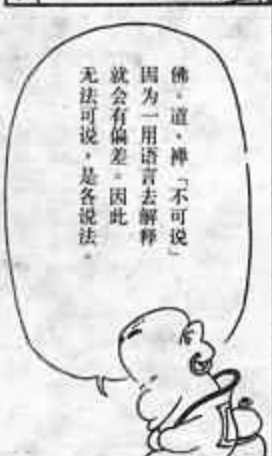 佛。道，禅「不可说」
因为一用语言去解释
就会有偏差。因此
无法可说，是各说法。